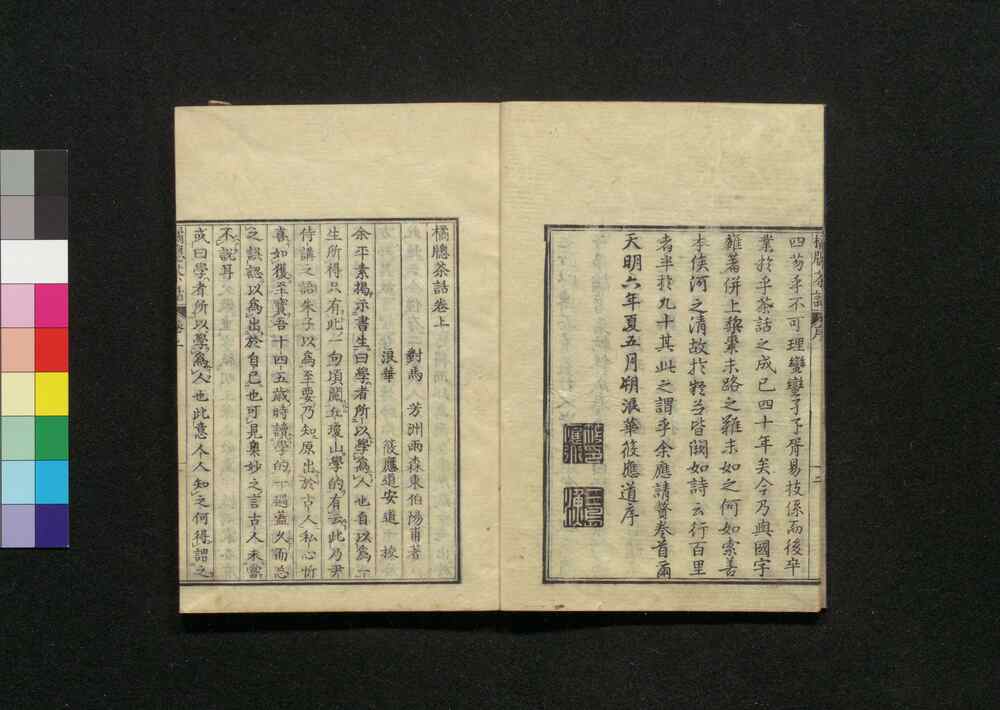 橘牕茶話序
四芴茅不可理孿孿孑孑胥易技係而後卒
業於乎茶話之成已四十年矣今乃與國字
雜著併上棃棗末路之難未如之何如索善
本俟河之清故於疑当皆闕如詩云行百里
者半於九十其此之謂乎余應請贅巻首爾
天明六年夏五月朔浪華筱應道序
橘牕茶話卷上
對馬 芳洲雨森東伯陽甫著
浪華 筱應道安道 校
余平素揭示書生曰學者所以學爲人也自以爲一
生所得只有此一句頃閱丘瓊山學的有云此乃尹
侍講之語朱子以爲至要乃知原出於古人私心忻
喜如獲至寶吾十四五歲時讀學的一過蓋久而忘
之誤認以爲出於自己也可見奧妙之言古人未嘗
不說耳
或曰學者所以學爲人也此意人人知之何得謂之